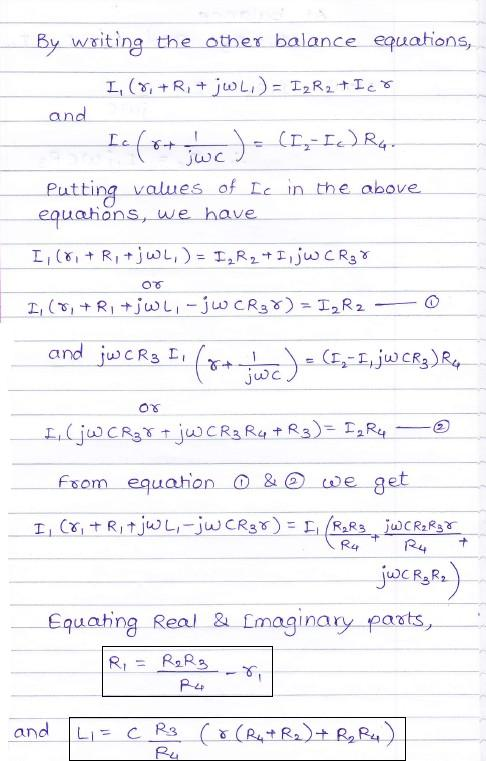 By writing the other balance equations,
I₁(r₁ + R₁ + jωL₁) = I₂R₂ + I_c r
and
I_c (r + 1/jωc) = (I₂ - I_c) R₄.
Putting values of I_c in the above
equations, we have
I₁(r₁ + R₁ + jωL₁) = I₂R₂ + I₁jωCR₃r
or
I₁(r₁ + R₁ + jωL₁ - jωCR₃r) = I₂R₂ — ①
and jωCR₃ I₁ (r + 1/jωc) = (I₂ - I₁jωCR₃)R₄
or
I₁(jωCR₃r + jωCR₃R₄ + R₃) = I₂R₄ — ②
From equation ① & ② we get
I₁(r₁ + R₁ + jωL₁ - jωCR₃r) = I₁(R₂R₃/R₄ + jωCR₂R₃r/R₄ +
jωCR₃R₂)
Equating Real & Imaginary parts,
R₁ = R₂R₃/R₄ - r₁
and L₁ = C R₃/R₄ (r(R₄ + R₂) + R₂R₄)